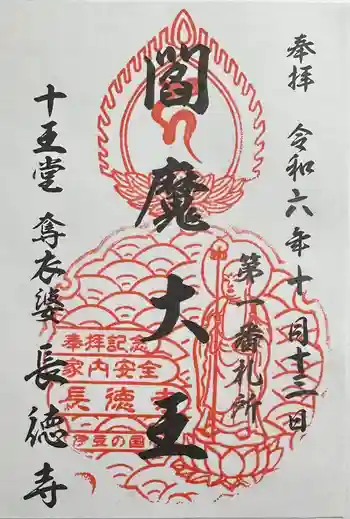 奉拝 令和六年十月十三日
第一番札所
閻魔大王
十王堂 奪衣婆 長徳寺
奉拝記念
家内安全
長徳寺
伊豆の国